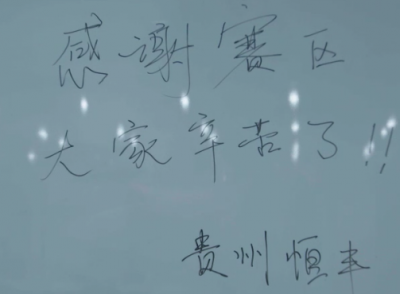 感谢赛区
大家辛苦了!!
贵州恒丰